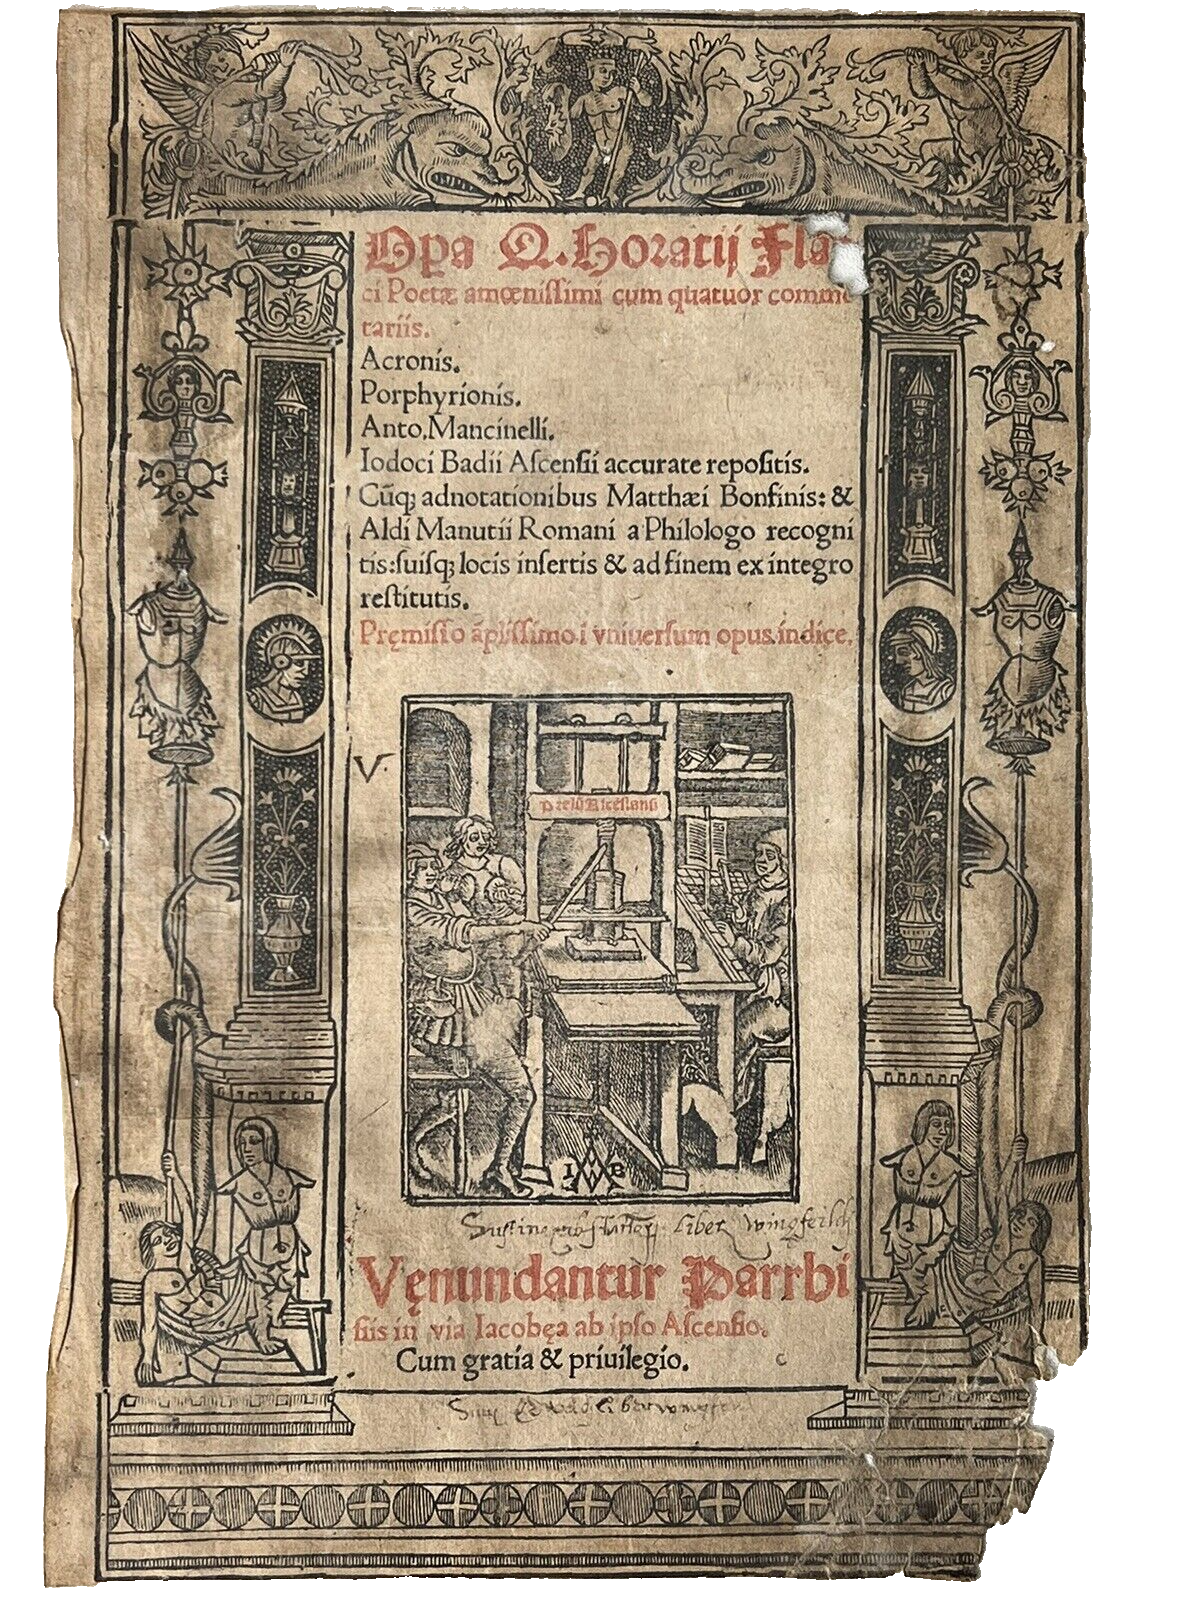 Opa Q. Horatij Fla-
ci Poetæ amœnissimi cum quatuor commē
tariis.
Acronis.
Porphyrionis.
Anto. Mancinelli.
Iodoci Badii Ascensii accurate repositis.
Cūq; adnotationibus Matthæi Bonfinis: &
Aldi Manutii Romani a Philologo recogni
tis: suisq; locis insertis & ad finem ex integro
restitutis.
Pręmisso āplissimo i vniuersum opus indice.
V.
Prelū Ascēsianū
I B
liber Wingfeild
Vęnundantur Parrhi
siis in via Iacobęa ab ipso Ascensio.
Cum gratia & priuilegio.